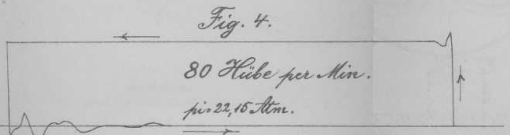 Fig. 4.
80 Hübe per Min.
pi=22,15 Atm.